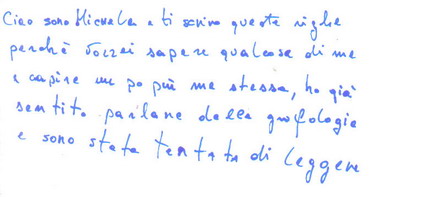 Ciao sono Michela e ti scrivo queste righe
perché vorrei sapere qualcosa di me
e capire un po più me stessa, ho già
sentito parlare della grafologia
e sono stata tentata di leggere